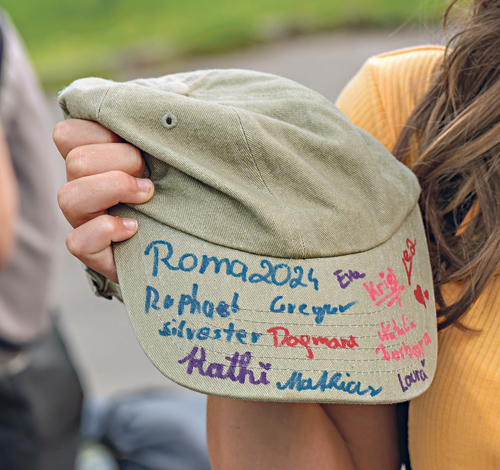 Roma 2024
Eva
Krisi
Lea
Raphael Gregor
Silvester Dagmara
Barbara
Kathi Mathias
Laura